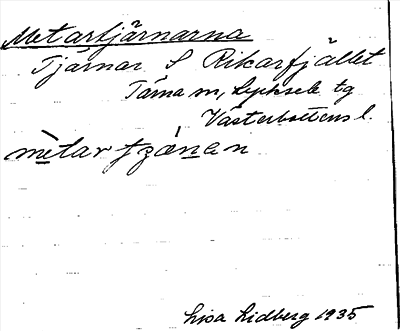 Metartjärnarna
Tjärnar S Rikarfjället
Tärna sn, Lycksele tg
Västerbottens l.
mètar tjæ̀nan
Lisa Lidberg 1935